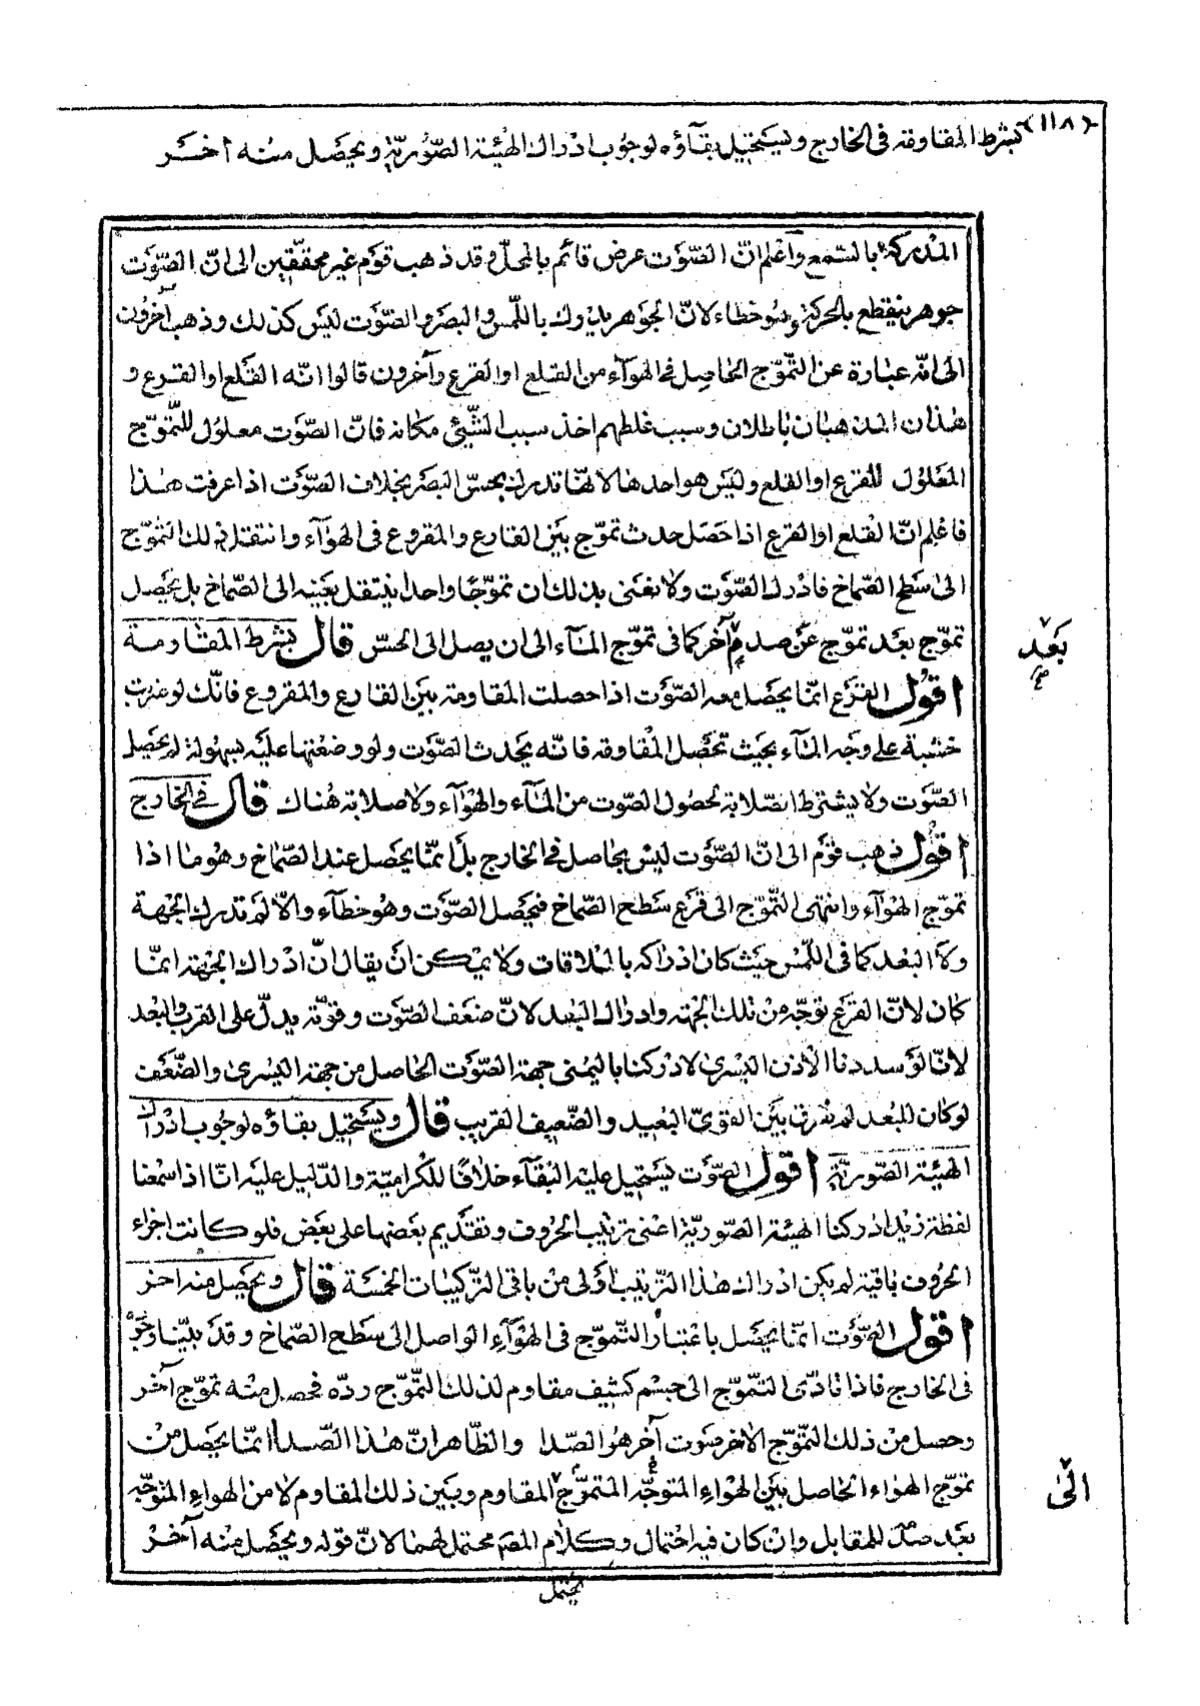 (١١٨)
بشرط المقاومة في الخارج ويستحيل بقآؤه لوجوب ادراك الهيئة الصّوريّة ويحصل منه آخر
المدركة بالسّمع واعلم انّ الصّوت عرض قائم بالمحلّ وقد ذهب قوم غير محقّقين الى انّ الصّوت
جوهر ينقطع بالحركة وهو خطاء لانّ الجوهر يدرك باللّمس والبصر والصّوت ليس كذلك وذهب آخرون
الى انّه عبارة عن التّموّج الحاصل في الهوآء من القلع او القرع وآخرون قالوا انّه القلع او القرع و
هذان المذهبان باطلان وسبب غلطهم اخذ سبب الشّيئ مكانه فانّ الصّوت معلول للتّموّج
المعلول للقرع او القلع وليس هو احدها لانّها تدرك بحسّ البصر بخلاف الصّوت اذا عرفت هذا
فاعلم انّ القلع او القرع اذا حصل حدث تموّج بين القارع والمقروع في الهوآء وانتقل ذلك التموّج
الى سطح الصّماخ فادرك الصّوت ولا نعنى بذلك ان تموّجًا واحدا ينتقل بعينه الى الصّماخ بل يحصل
تموّج بعد تموّج عن صدم آخر كما في تموّج المآء الى ان يصل الى الحسّ قال بشرط المقاومة
اقول القرع انّما يحصل معه الصّوت اذا حصلت المقاومة بين القارع والمقروع فانّك لو ضربت
خشبة على وجه المآء بحيث تحصل المقاومة فانّه يحدث الصّوت ولو وضعتها عليه بسهولة لم يحصل
الصّوت ولا يشترط الصّلابة لحصول الصّوت من المآء والهوآء ولا صلابة هناك قال في الخارج
اقول ذهب قوم الى انّ الصّوت ليس بحاصل في الخارج بل انّما يحصل عند الصّماخ وهو ما اذا
تموّج الهوآء وانتهى التّموّج الى قرع سطح الصّماخ فيحصل الصّوت وهو خطآء والّا لم تدرك الجهة
ولا البعد كما في اللّمس حيث كان ادراكه بالملاقات ولا يمكن أن يقال انّ ادراك الجهة انّما
كان لانّ القرع توجّه من تلك الجهة وادراك البعد لانّ ضعف الصّوت وقوّته يدلّ على القرب والبعد
لانّا لو سددنا الاذن اليسرى لادركنا باليمنى جهة الصّوت الحاصل من جهة اليسرى والضّعف
لو كان للبعد لم نفرق بين القويّ البعيد والضّعيف القريب قال ويستحيل بقاؤه لوجوب ادراك
الهيئة الصّوريّة اقول الصّوت يستحيل عليه البقآء خلافًا للكراميّة والدّليل عليه انّا اذا سمعنا
لفظة زيد ادركنا الهيئة الصّوريّة اعنى ترتيب الحروف وتقديم بعضها على بعض فلو كانت اجزاء
الحروف باقية لم يكن ادراك هذا التّرتيب اولى من باقى التّركيبات الخمسة قال ويحصل منه آخر
اقول الصّوت انّما يحصل باعتبار التّموّج في الهوآء الواصل الى سطح الصّماخ وقد بيّنا وجوده
في الخارج فاذا تادّى التموّج الى جسم كثيف مقاوم لذلك التّموّج ردّه فحصل منه تموّج آخر
وحصل من ذلك التموّج الاخر صوت آخر هو الصّدا والظّاهر انّ هذا الصّدا انّما يحصل من
تموّج الهواء الحاصل بين الهواء المتوجّه المتموّج المقاوم وبين ذلك المقاوم لا من الهواء المتوجّه
بعد صدم للمقابل وان كان فيه احتمال وكلام المصم محتمل لهما لانّ قوله ويحصل منه آخر
يحتمل
بعد
الى